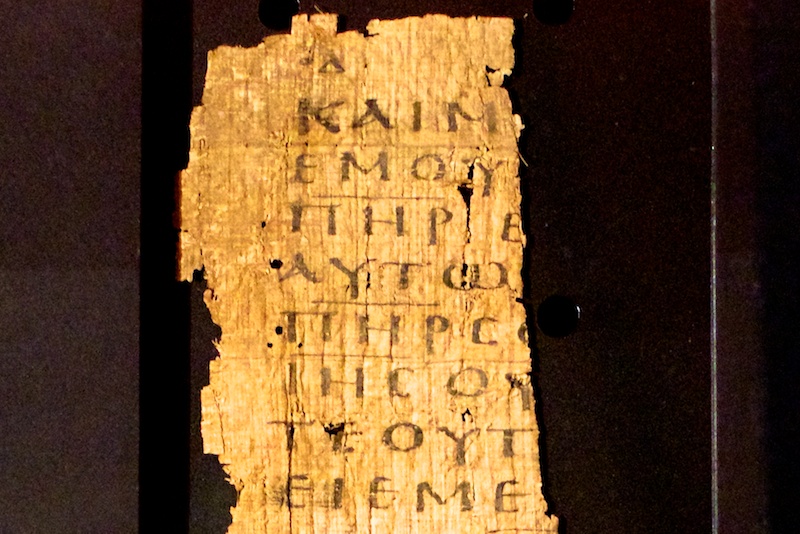 Δ
ΚΑΙ Μ
ΕΜΟΥ
ΠΗΡ Ε
ΑΥΤΩ
ΠΗΡ ϹΟ
ΙΗϹΟΥ
ΤΕ ΟΥΤ
ΕΙ ΕΜΕ